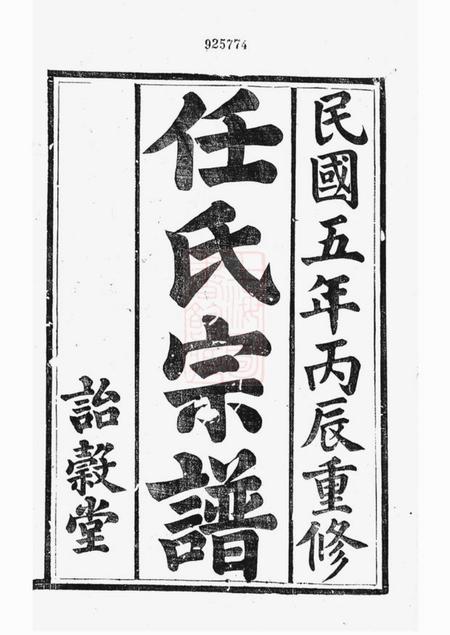 925774
民國五年丙辰重修
任氏宗譜
詒穀堂